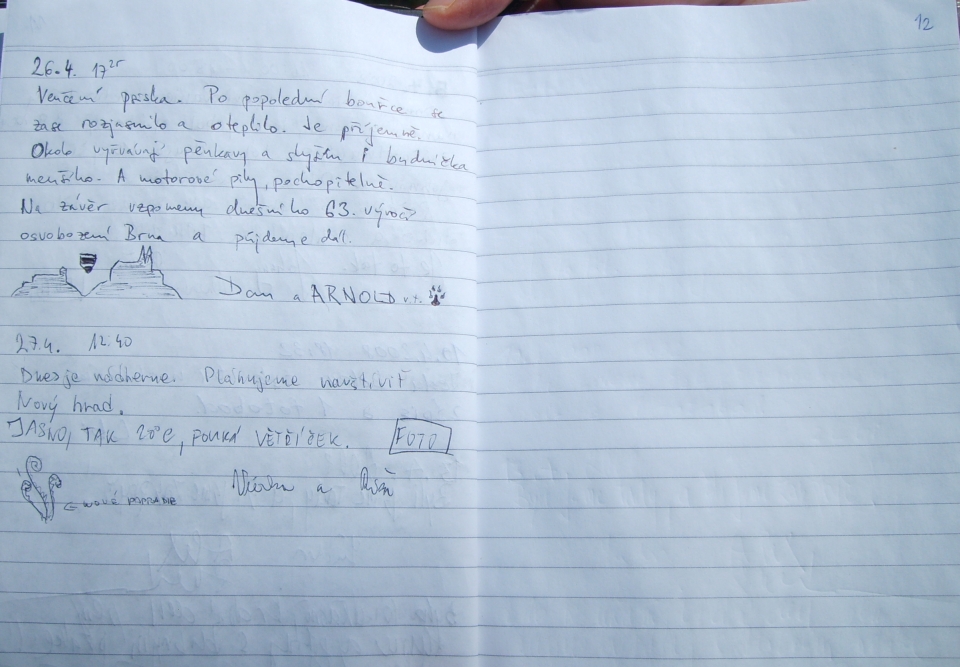 12
26.4. 17²⁵
Venčení psiska. Po popolední bouřce se
zase rozjasnilo a oteplilo. Je příjemně.
Okolo vyřvávají pěnkavy a slyším i budníčka
menšího. A motorové pily, pochopitelně.
Na závěr vzpomenu dnešního 63. výročí
osvobození Brna a půjdeme dál.
Dan a ARNOLD v.t.
27.4. 12.40
Dnes je nádherně. Plánujeme navštívit
Nový hrad.
JASNO, TAK 20°C, FOUKÁ VĚTŘÍČEK. FOTO
← NOVÉ
a